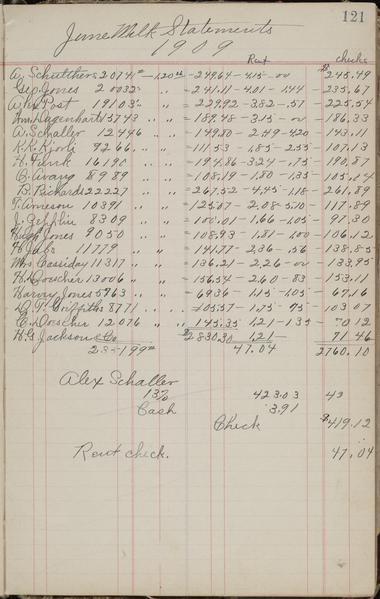 121
June Milk Statements
1909
Rout checks
A. Schutchers 20741# - 120 = 249.64 - 4.15 - 00 $245.49
Geo. Jones 20032 " " = 241.11 - 4.01 - 1.44 - 235.67
Alex Post 19103 " " = 229.92 - 3.82 - .57 - 225.54
Wm. Dagenhart 15743 " " = 189.48 - 3.15 - 00 - 186.33
A. Schaller 12446 " " = 149.80 - 2.49 - 4.20 - 143.11
K.K. 9266 " " = 111.53 - 1.85 - 2.55 - 107.13
H. Funk 16190 " " = 194.86 - 3.24 - .75 - 190.87
B. 8989 " " = 108.19 - 1.80 - 1.35 - 105.04
D. Richards 22227 " " = 267.52 - 4.45 - 1.18 - 261.89
T. Arneson 10391 " " = 125.07 - 2.08 - 5.10 - 117.89
J. 8309 " " = 100.01 - 1.66 - 1.05 - 97.30
Hugh Jones 9050 " " = 108.93 - 1.81 - 1.00 - 106.12
H. 11779 " " = 141.77 - 2.36 - .56 - 138.85
Mrs Cassiday 11317 " " = 136.21 - 2.26 - 00 - 133.95
H. Boucher 13006 " " = 156.54 - 2.60 - 83 - 153.11
Harvey Jones 5763 " " = 69.36 - 1.15 - 1.05 - 67.16
G. T. Griffiths 8771 " " = 105.57 - 1.75 - 75 - 103.07
C. Dorscher 12,076 " " = 145.35 1.21 - 1.35 - 70.12
H.G. Jackson & Co $2830.30 1.21 - 71.46
47.04 2760.10
Alex Schaller
13% 423.03
Cash 3.91
Check $419.12
Rout check. 47.04